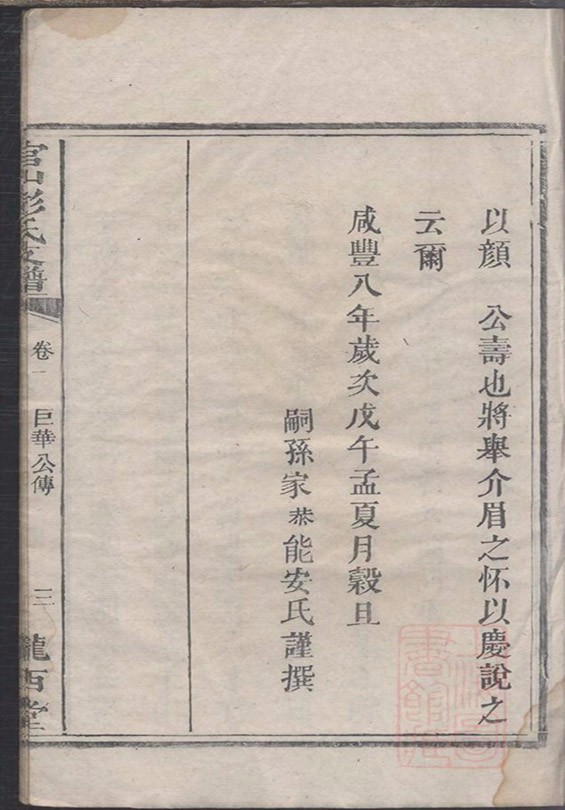 以顏　公壽也將舉介眉之怀以慶說之
云爾
咸豐八年歲次戊午孟夏月穀旦
嗣孫家恭能安氏謹撰
官山彭氏支譜
卷一
巨華公傳
三
隴西堂